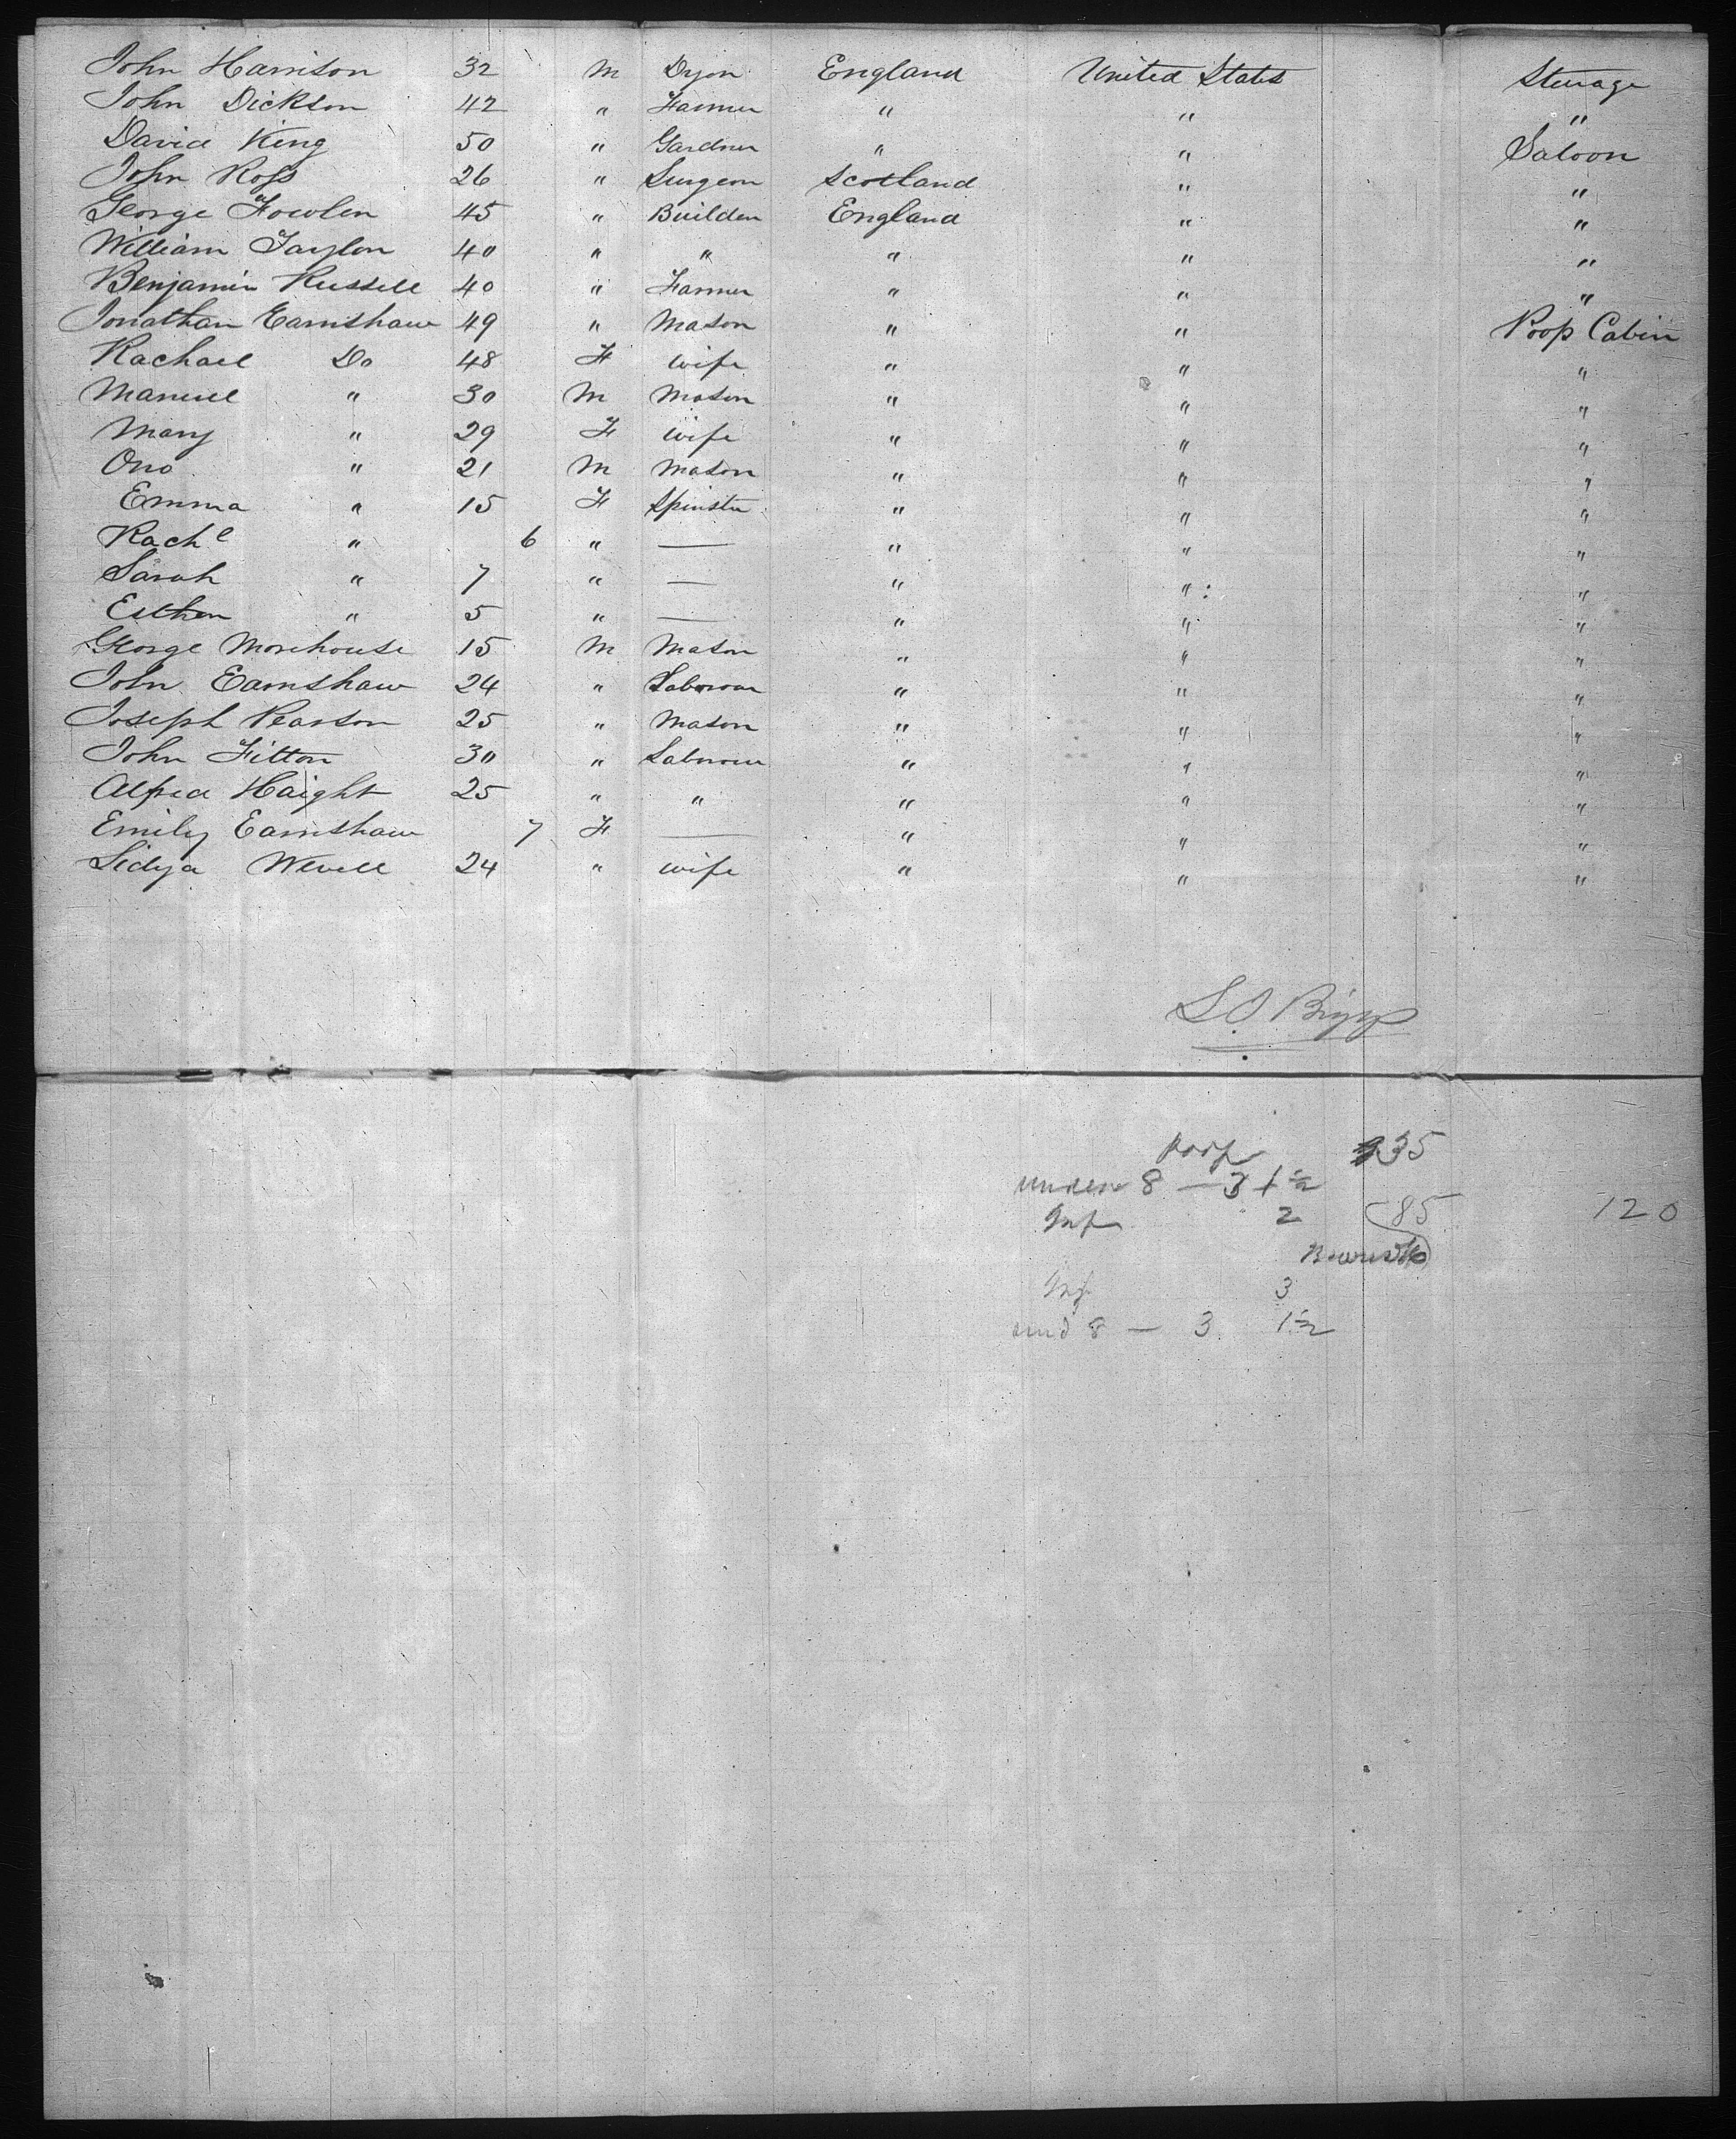 John Harrison 32 M Dyer England United States Steerage
John Dickson 42 " Farmer " " "
David King 50 " Gardner " " Saloon
John Ross 26 " Surgeon Scotland " "
George Fowler 45 " Builder England " "
William Taylor 40 " " " " "
Benjamin Russell 40 " Farmer " " "
Jonathan Earnshaw 49 " Mason " " Poop Cabin
Rachael Do 48 F wife " " "
Manuel " 30 M Mason " " "
Mary " 29 F wife " " "
Ono " 21 M Mason " " "
Emma " 15 F Spinster " " "
Rachl " 6 " — " " "
Sarah " 7 " — " " "
Esther " 5 " — " " "
George Morehouse 15 M Mason " " "
John Earnshaw 24 " Labourer " " "
Joseph Pearson 25 " Mason " " "
John Fitton 30 " Labourer " " "
Alfred Haight 25 " " " " "
Emily Earnshaw 7 F — " " "
Lidya Wevell 24 " wife " " "
Poop 35
under 8 — 3 1½
Inf 2 85 120
Inf 3
und 8 — 3 1½